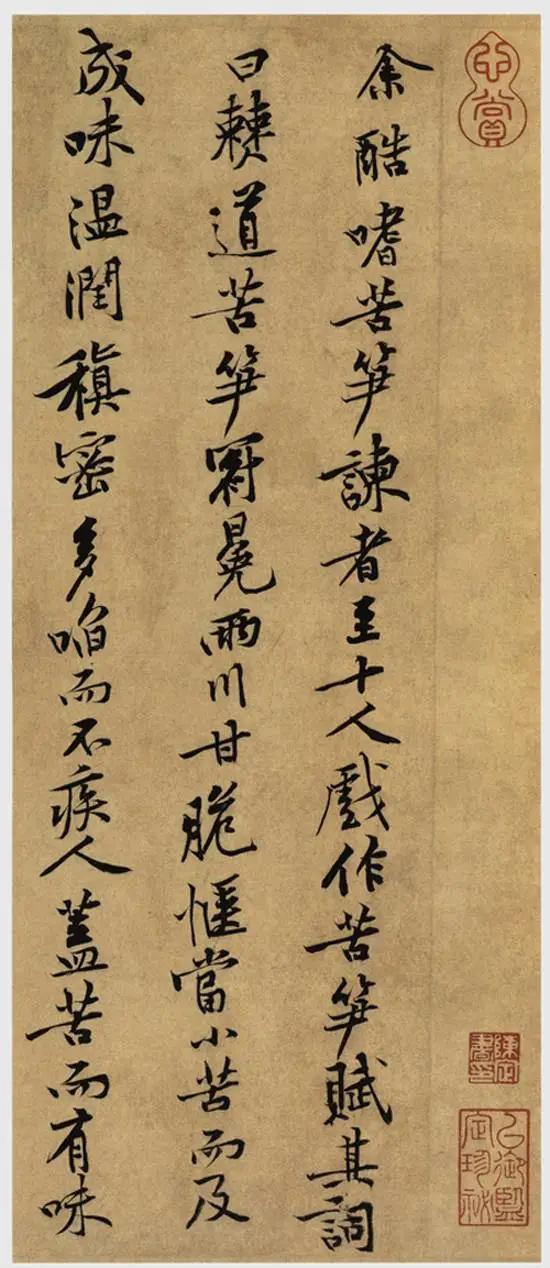 余酷嗜苦笋諫者至十人戲作苦笋賦其詞
曰僰道苦笋冠冕兩川甘脆愜當小苦而及
成味温潤稹密多啗而不疾人蓋苦而有味
心賞